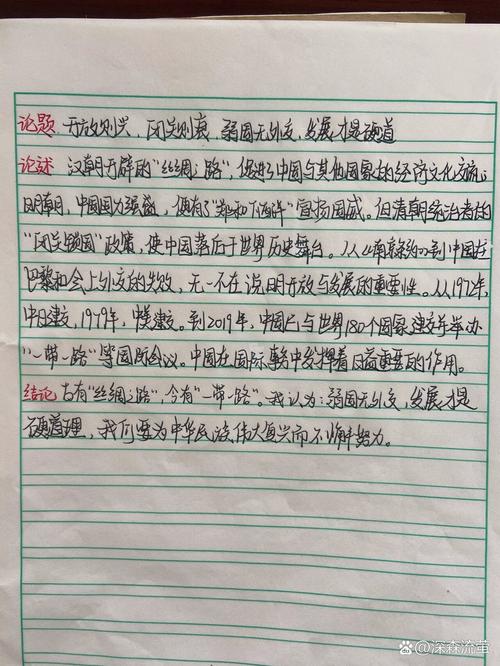 论题 开放则兴，闭关则衰 弱国无外交，发展才是硬道
论述 汉朝开辟的“丝绸之路”，促进了中国与其他国家的经济文化交流。
明朝，中国国力强盛，便有了“郑和下西洋”宣扬国威。但清朝统治者的
“闭关锁国”政策，使中国落后于世界历史舞台。从《马关条约》到中国在
巴黎和会上外交的失败，无一不在说明开放与发展的重要性。从1972年，
中日建交，1979年，中美建交。到2019年，中国已与世界180个国家建交并举办
“一带一路”等国际会议。中国在国际事务中发挥着日益重要的作用。
结论 古有“丝绸之路”，今有“一带一路”。我认为：弱国无外交，发展才是
硬道理，我们要为中华民族伟大复兴而不懈努力。
Baidu百科@深森流萤